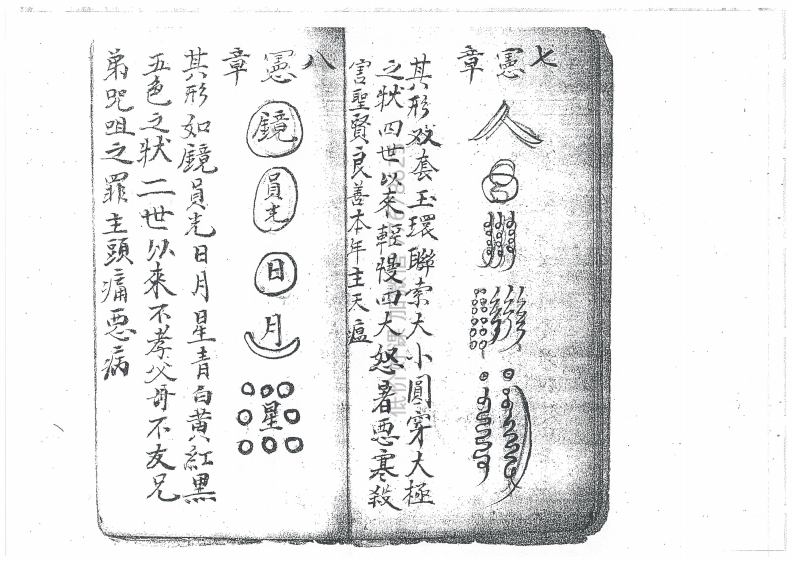 七憲章
人
其形双套玉環聯索大小圓穿大極
之状四世以來輕慢四大怒暑惡寒殺
害聖賢良善本年主天瘟
八憲章
鏡
員光
日
月
星
其形如鏡員光日月星青白黃紅黑
五色之状二世以來不孝父母不友兄
弟咒咀之罪主頭痛惡病